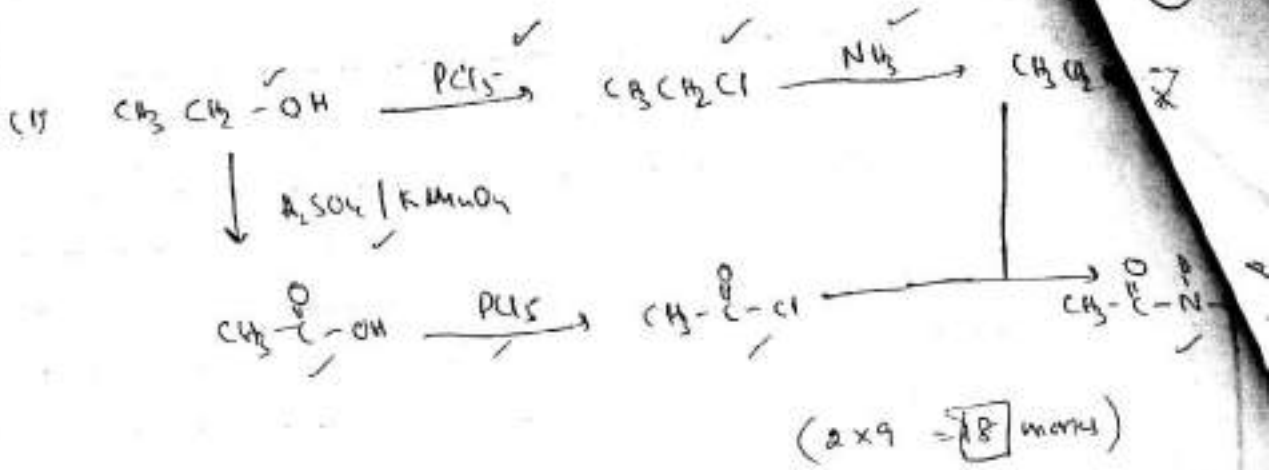 (1) CH₃ CH₂ - OH PCl₅ CH₃CH₂Cl NH₃ CH₃
H₂SO₄ | KMnO₄
O O O H
CH₃ - C - OH PCl₅ CH₃ - C - Cl CH₃ - C - N -
(2 x 9 = 18 marks)